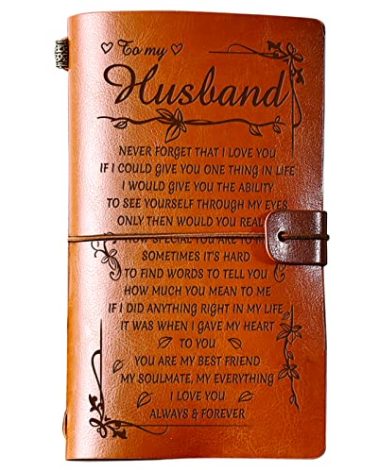 To my
Husband
NEVER FORGET THAT I LOVE YOU
IF I COULD GIVE YOU ONE THING IN LIFE
I WOULD GIVE YOU THE ABILITY
TO SEE YOURSELF THROUGH MY EYES
ONLY THEN WOULD YOU
SPECIAL YOU ARE TO
SOMETIMES IT'S HARD
TO FIND WORDS TO TELL YOU
HOW MUCH YOU MEAN TO ME
IF I DID ANYTHING RIGHT IN MY LIFE
IT WAS WHEN I GAVE MY HEART
TO YOU
YOU ARE MY BEST FRIEND
MY SOULMATE, MY EVERYTHING
I LOVE YOU
ALWAYS & FOREVER